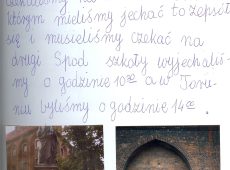 którym mieliśmy jechać to zepsół
się i musieliśmy czekać na
drugi Spod szkoły wyjechaliś-
my o godzinie 10³⁰ a w Toru-
niu byliśmy o godzinie 14⁰⁰.